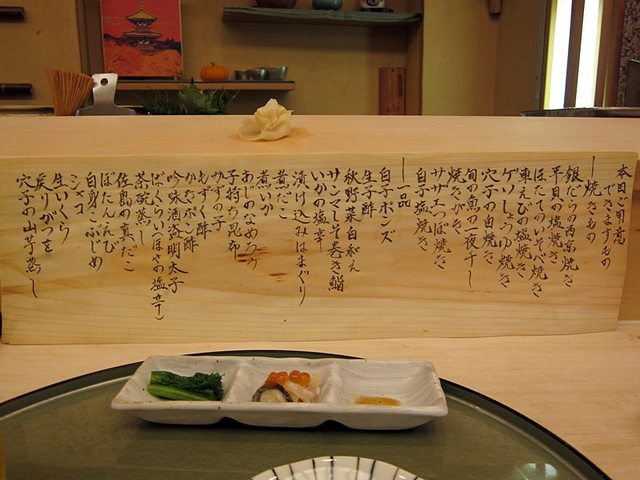 本日ご用意
できますもの
ー焼きもの
銀だらの西京焼き
平目の塩焼き
ほたてのいそべ焼き
車えびの塩焼き
ゲソしょうゆ焼き
穴子の白焼き
旬の魚の一夜干し
焼きがき
サザエつぼ焼き
白子塩焼き
ー一品
白子ポンズ
生子酢
秋野菜白和え
サンマしそ巻き鮨
いかの塩辛
漬け込みはまぐり
煮だこ
煮いか
あじのなめろう
子持ち昆布
かずの子
もずく酢
かきポン酢
吟味酒盗明太子
ばくらい(ほきの塩辛)
茶碗蒸し
佐島の真だこ
ぼたんえび
白身こぶじめ
シャコ
生いくら
戻りがつを
穴子の山芋蒸し